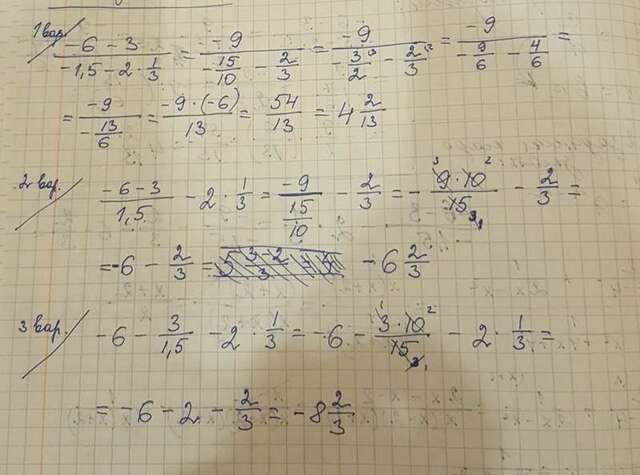 1 вар.
(-6-3)/(-1,5-2·1/3) = -9/(-15/10 - 2/3) = -9/(-3/2 - 2/3) = -9/(-9/6 - 4/6) =
= -9/(-13/6) = -9·(-6)/13 = 54/13 = 4 2/13
2 вар. (-6-3)/1,5 - 2·1/3 = -9/(15/10) - 2/3 = - 9·10/15 - 2/3 =
= -6 - 2/3 = -6 2/3
3 вар. -6 - 3/1,5 - 2·1/3 = -6 - 3·10/15 - 2·1/3 =
= -6 - 2 - 2/3 = -8 2/3